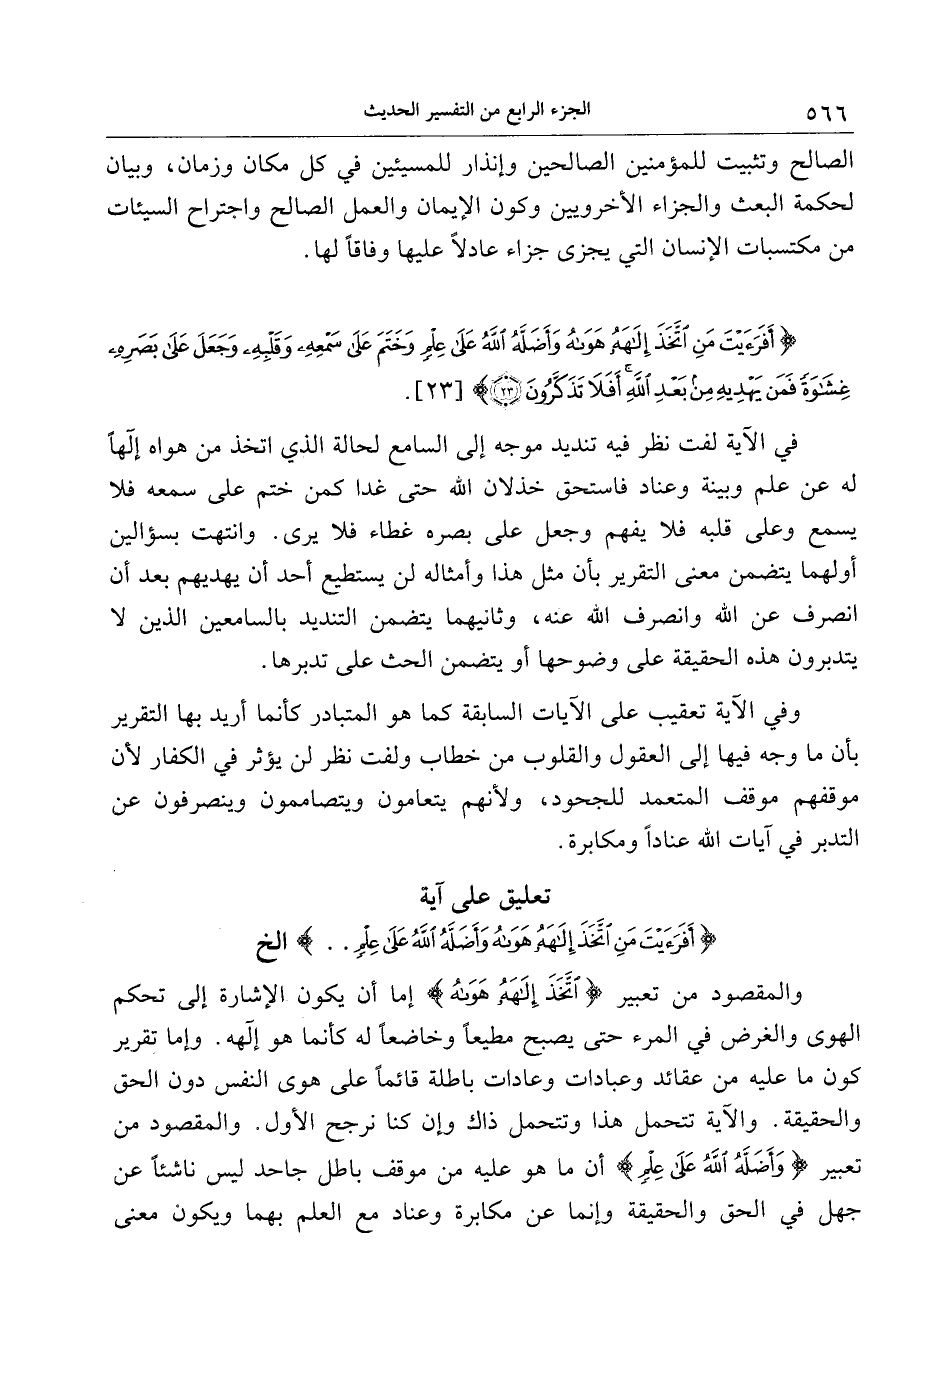 ٥٦٦ الجزء الرابع من التفسير الحديث
الصالح وتثبيت للمؤمنين الصالحين وإنذار للمسيئين في كل مكان وزمان، وبيان
لحكمة البعث والجزاء الأخرويين وكون الإيمان والعمل الصالح واجتراح السيئات
من مكتسبات الإنسان التي يجزى جزاء عادلاً عليها وفاقاً لها.
﴿ أَفَرَءَيْتَ مَنِ ٱتَّخَذَ إِلَٰهَهُۥ هَوَىٰهُ وَأَضَلَّهُ ٱللَّهُ عَلَىٰ عِلْمٍ وَخَتَمَ عَلَىٰ سَمْعِهِۦ وَقَلْبِهِۦ وَجَعَلَ عَلَىٰ بَصَرِهِۦ
غِشَٰوَةً فَمَن يَهْدِيهِ مِنۢ بَعْدِ ٱللَّهِ ۚ أَفَلَا تَذَكَّرُونَ (٢٣)﴾ [٢٣].
في الآية لفت نظر فيه تنديد موجه إلى السامع لحالة الذي اتخذ من هواه إلٓهاً
له عن علم وبينة وعناد فاستحق خذلان الله حتى غدا كمن ختم على سمعه فلا
يسمع وعلى قلبه فلا يفهم وجعل على بصره غطاء فلا يرى. وانتهت بسؤالين
أولهما يتضمن معنى التقرير بأن مثل هذا وأمثاله لن يستطيع أحد أن يهديهم بعد أن
انصرف عن الله وانصرف الله عنه، وثانيهما يتضمن التنديد بالسامعين الذين لا
يتدبرون هذه الحقيقة على وضوحها أو يتضمن الحث على تدبرها.
وفي الآية تعقيب على الآيات السابقة كما هو المتبادر كأنما أريد بها التقرير
بأن ما وجه فيها إلى العقول والقلوب من خطاب ولفت نظر لن يؤثر في الكفار لأن
موقفهم موقف المتعمد للجحود، ولأنهم يتعامون ويتصاممون وينصرفون عن
التدبر في آيات الله عناداً ومكابرة.
تعليق على آية
﴿ أَفَرَءَيْتَ مَنِ ٱتَّخَذَ إِلَٰهَهُۥ هَوَىٰهُ وَأَضَلَّهُ ٱللَّهُ عَلَىٰ عِلْمٍ . . ﴾ الخ
والمقصود من تعبير ﴿ ٱتَّخَذَ إِلَٰهَهُۥ هَوَىٰهُ ﴾ إما أن يكون الإشارة إلى تحكم
الهوى والغرض في المرء حتى يصبح مطيعاً وخاضعاً له كأنما هو إلٓهه. وإما تقرير
كون ما عليه من عقائد وعبادات وعادات باطلة قائماً على هوى النفس دون الحق
والحقيقة. والآية تتحمل هذا وتتحمل ذاك وإن كنا نرجح الأول. والمقصود من
تعبير ﴿ وَأَضَلَّهُ ٱللَّهُ عَلَىٰ عِلْمٍ ﴾ أن ما هو عليه من موقف باطل جاحد ليس ناشئاً عن
جهل في الحق والحقيقة وإنما عن مكابرة وعناد مع العلم بهما ويكون معنى